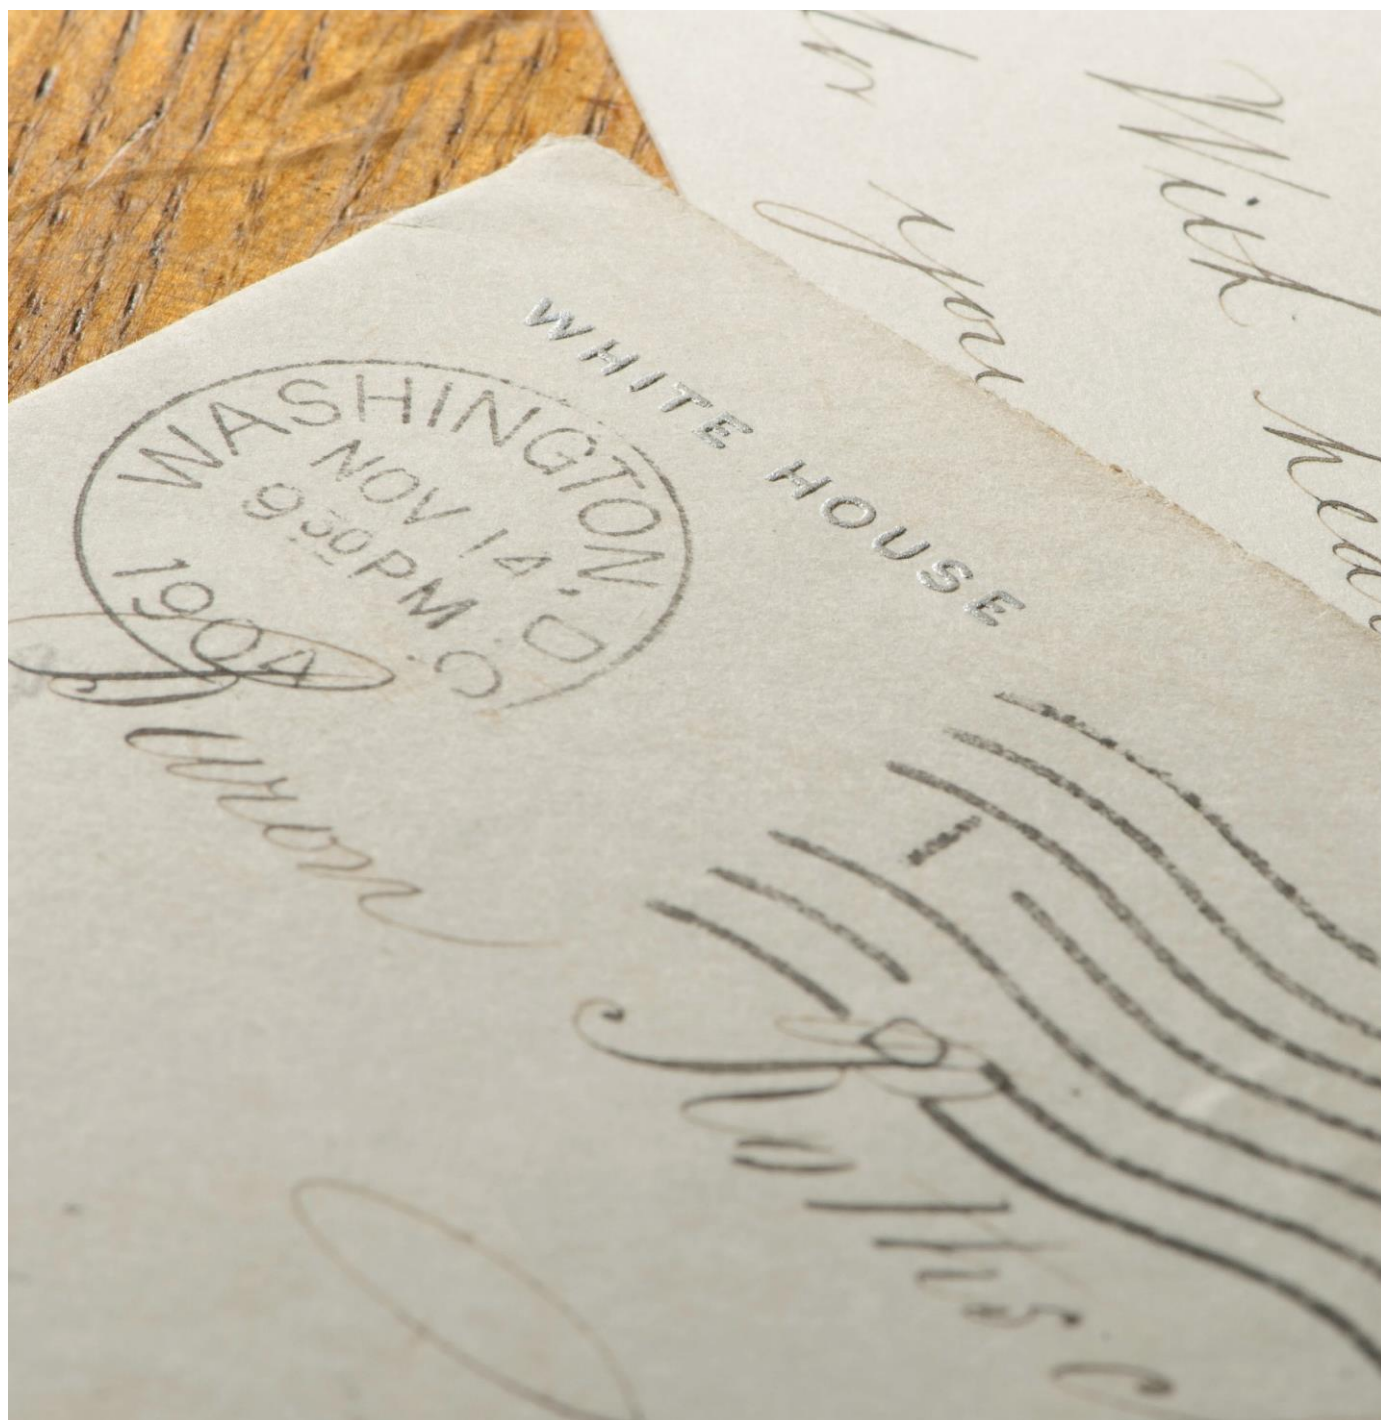 WHITE HOUSE
WASHINGTON, D.C.
NOV 14
9 30 PM
1904
Baron
1
D
With
you